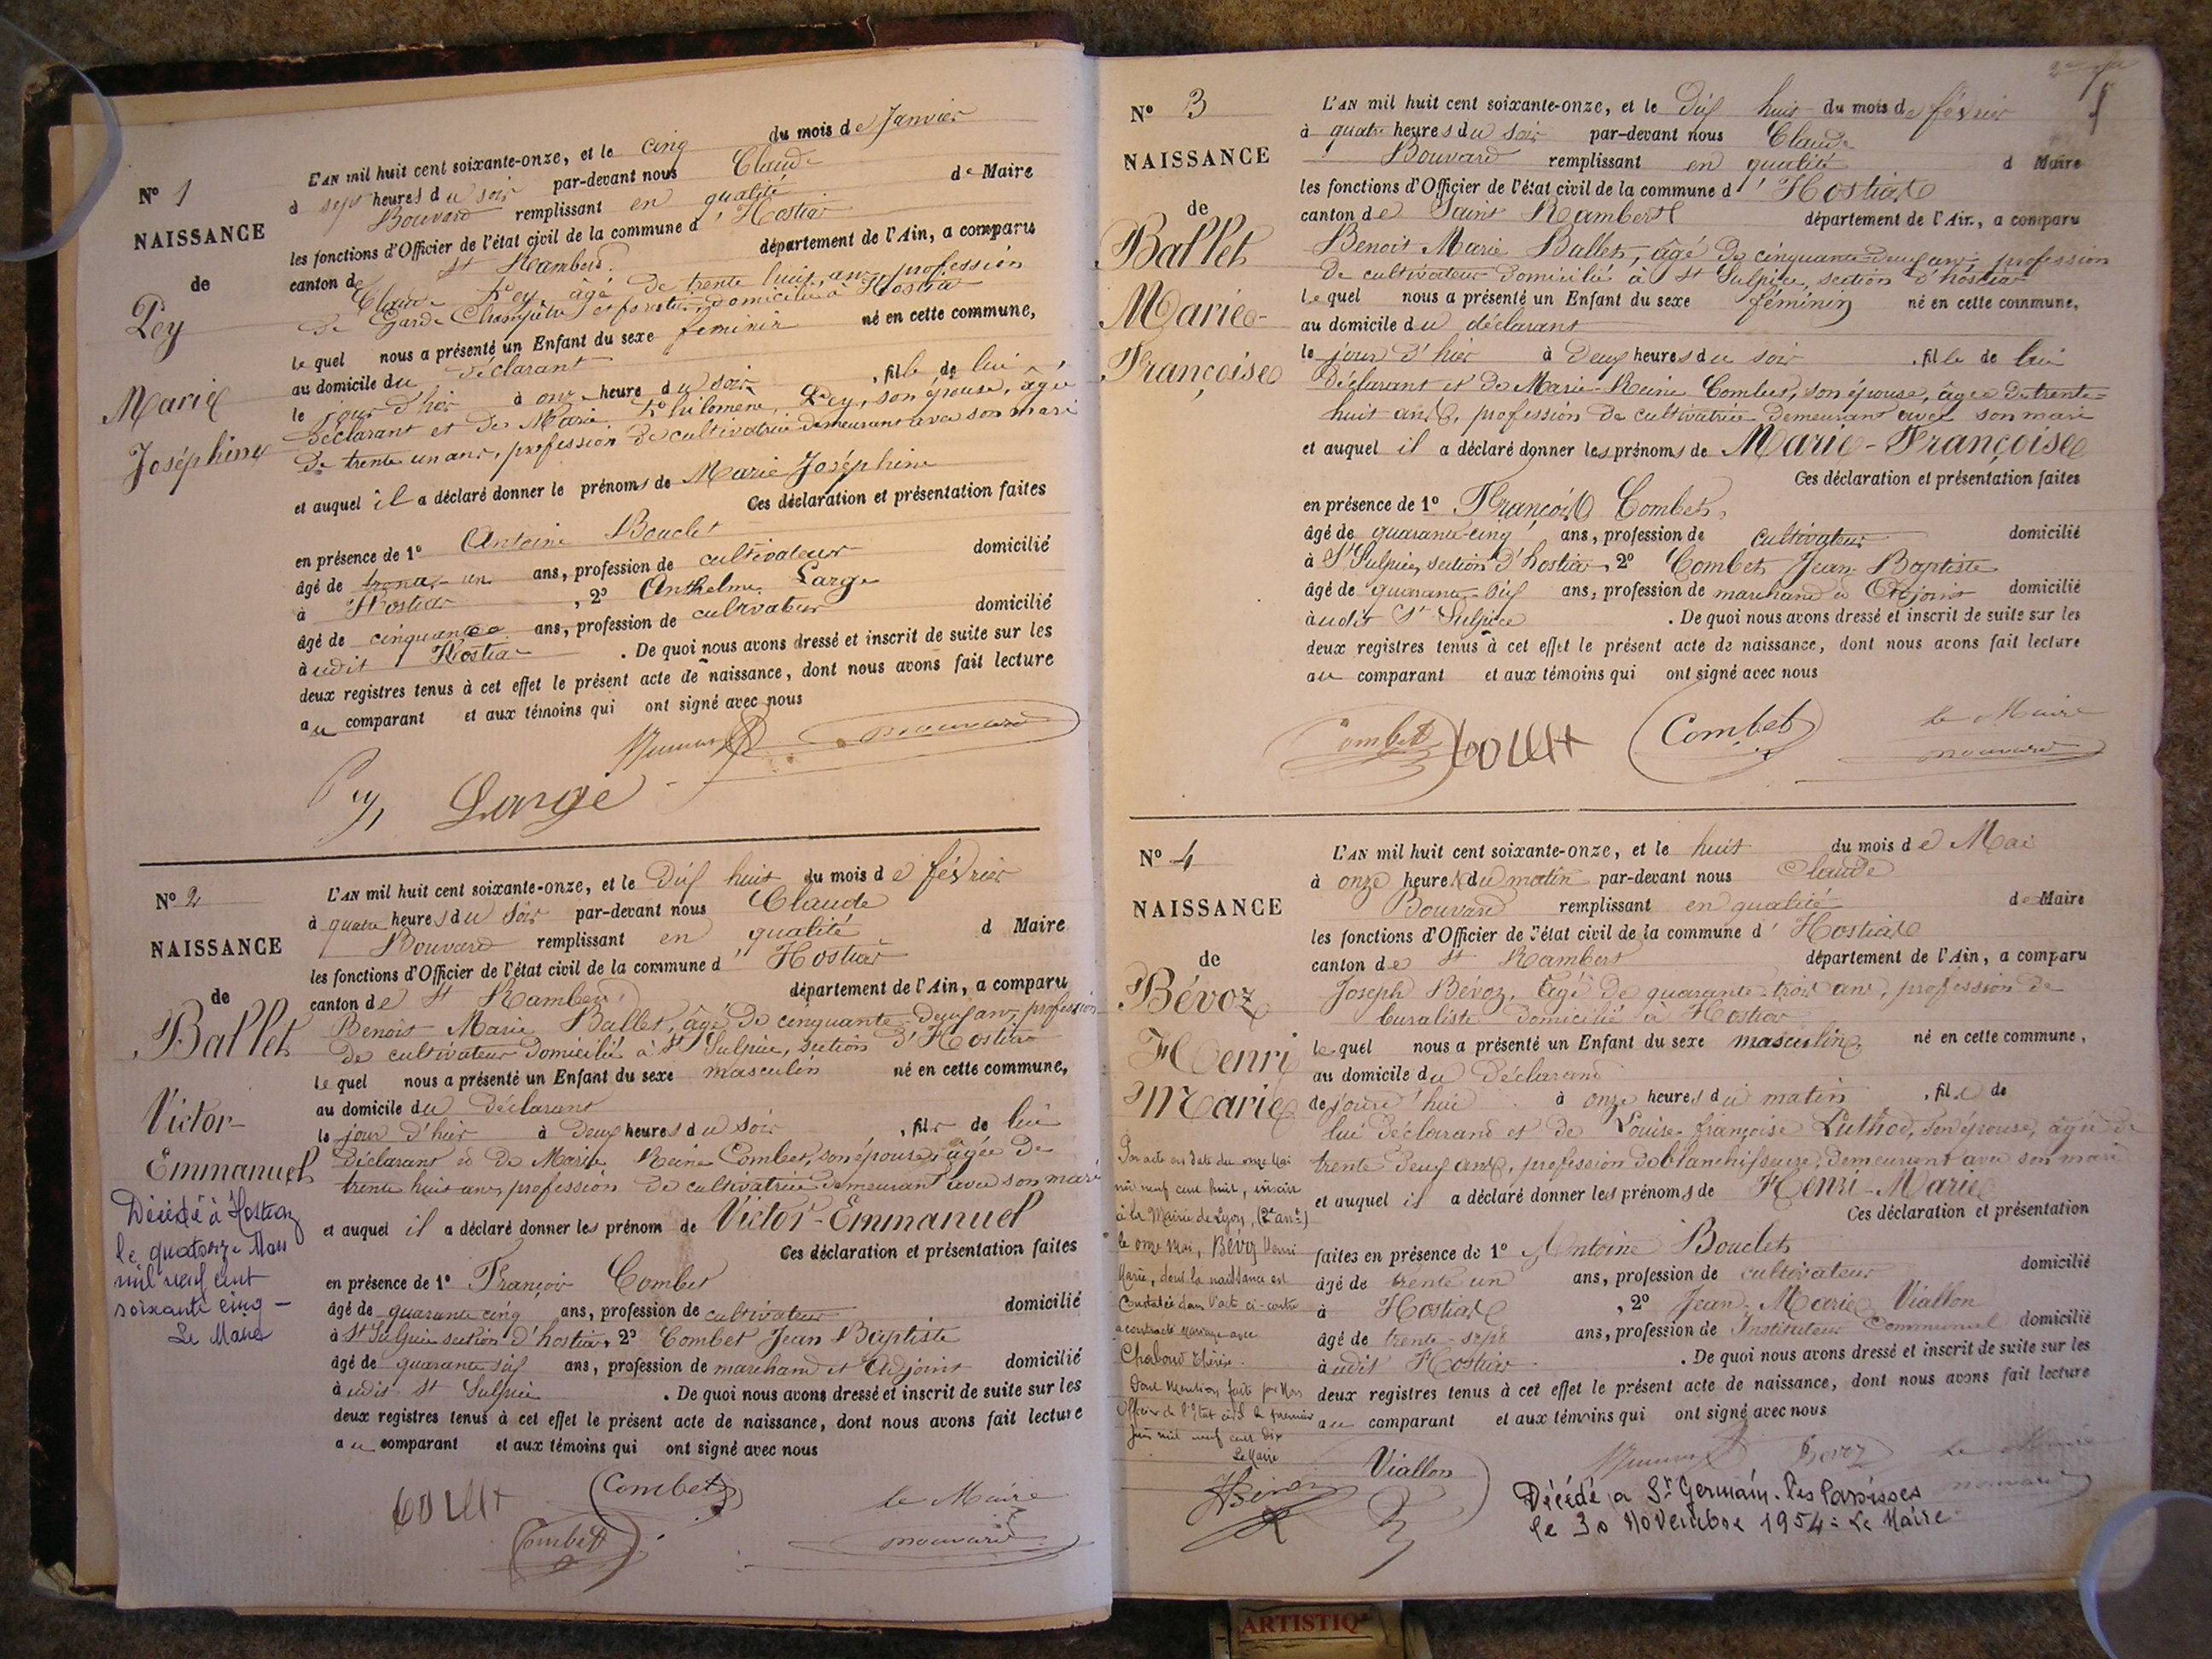 Nº 1
NAISSANCE
de
Pey
Marie
Joséphine
L'AN mil huit cent soixante-onze, et le cinq du mois de Janvier
à sept heures du soir par-devant nous Claude
Bouvard remplissant en qualité de Maire
les fonctions d'Officier de l'état civil de la commune d' Hostiar
canton de St Rambert département de l'Ain, a comparu
Claude Pey, âgé de trente huit ans, profession
de Garde Champêtre et forestier, domicilié à Hostiar
lequel nous a présenté un Enfant du sexe féminin né en cette commune,
au domicile du déclarant
le jour d'hier à onze heure du soir, fille de lui
déclarant et de Marie Philomène Pey, son épouse, âgée
de trente un ans, profession de cultivatrice demeurant avec son mari
et auquel il a déclaré donner le prénoms de Marie Joséphine
Ces déclaration et présentation faites
en présence de 1º Antoine Bouclet
âgé de trente un ans, profession de cultivateur domicilié
à Hostiar, 2º Anthelme Large
âgé de cinquante ans, profession de cultivateur domicilié
à udit Hostiar. De quoi nous avons dressé et inscrit de suite sur les
deux registres tenus à cet effet le présent acte de naissance, dont nous avons fait lecture
au comparant et aux témoins qui ont signé avec nous
Pey Large
Nº 2
NAISSANCE
de
Ballet
Victor
Emmanuel
Décédé à Hostiaz
le quatorze Mars
mil neuf cent
soixante cinq -
Le Maire
L'AN mil huit cent soixante-onze, et le Dix huit du mois de février
à quatre heures du soir par-devant nous Claude
Bouvard remplissant en qualité d Maire
les fonctions d'Officier de l'état civil de la commune d' Hostiar
canton de St Rambert département de l'Ain, a comparu
Benoit Marie Ballet, âgé de cinquante-deux ans, profession
de cultivateur domicilié à St Sulpice, section d'Hostiar
lequel nous a présenté un Enfant du sexe masculin né en cette commune,
au domicile du déclarant
le jour d'hier à deux heures du soir, fils de lui
déclarant et de Marie Reine Combet, son épouse, âgée de
trente huit ans, profession de cultivatrice demeurant avec son mari
et auquel il a déclaré donner les prénom de Victor-Emmanuel
Ces déclaration et présentation faites
en présence de 1º François Combet
âgé de quarante cinq ans, profession de cultivateur domicilié
à St Sulpice section d'hostiar, 2º Combet Jean Baptiste
âgé de quarante six ans, profession de marchand et Adjoint domicilié
à udit St Sulpice. De quoi nous avons dressé et inscrit de suite sur les
deux registres tenus à cet effet le présent acte de naissance, dont nous avons fait lecture
au comparant et aux témoins qui ont signé avec nous
Combet
Combet
le Maire
Nº 3
NAISSANCE
de
Ballet
Marie-
Françoise
L'AN mil huit cent soixante-onze, et le Dix huit du mois de février
à quatre heures du soir par-devant nous Claude
Bouvard remplissant en qualité d Maire
les fonctions d'Officier de l'état civil de la commune d' Hostiar
canton de Saint Rambert département de l'Ain, a comparu
Benoit Marie Ballet, âgé de cinquante-deux ans, profession
de cultivateur domicilié à St Sulpice, section d'hostiar
lequel nous a présenté un Enfant du sexe féminin né en cette commune,
au domicile du déclarant
le jour d'hier à deux heures du soir, fille de lui
déclarant et de Marie-Reine Combet, son épouse, âgée de trente-
huit ans, profession de cultivatrice demeurant avec son mari
et auquel il a déclaré donner les prénoms de Marie-Françoise
Ces déclaration et présentation faites
en présence de 1º François Combet,
âgé de quarante-cinq ans, profession de cultivateur domicilié
à St Sulpice, section d'hostiar, 2º Combet Jean-Baptiste
âgé de quarante-six ans, profession de marchand et Adjoint domicilié
à udit St Sulpice. De quoi nous avons dressé et inscrit de suite sur les
deux registres tenus à cet effet le présent acte de naissance, dont nous avons fait lecture
au comparant et aux témoins qui ont signé avec nous
Combet Combet le Maire
Nº 4
NAISSANCE
de
Bévoz
Henri
Marie
Par acte en date du onze Mai
mil neuf cent huit, inscrit
à la Mairie de Lyon, (2e arrt)
le onze Mai, Bévoz Henri
Marie, dont la naissance est
constatée dans l'acte ci-contre
a contracté mariage avec
Chaboud Thérèse.
Dont Mention faite par Nous
Officier de l'Etat civil le premier
Juin mil neuf cent dix
Le Maire
L'AN mil huit cent soixante-onze, et le huit du mois de Mai
à onze heures du matin par-devant nous Claude
Bouvard remplissant en qualité de Maire
les fonctions d'Officier de l'état civil de la commune d' Hostiar
canton de St Rambert département de l'Ain, a comparu
Joseph Bévoz, âgé de quarante-trois ans, profession de
buraliste domicilié à Hostiar
lequel nous a présenté un Enfant du sexe masculin né en cette commune,
au domicile du déclarant
de jourd'hui à onze heures du matin, fils de
lui déclarant et de Louise-françoise Luthod, son épouse, âgée de
trente deux ans, profession de blanchisseuse, demeurant avec son mari
et auquel il a déclaré donner les prénoms de Henri-Marie
Ces déclaration et présentation
faites en présence de 1º Antoine Bouclet
âgé de trente un ans, profession de cultivateur domicilié
à Hostiar, 2º Jean-Marie Viallon
âgé de trente-sept ans, profession de Instituteur Communal domicilié
à udit Hostiar. De quoi nous avons dressé et inscrit de suite sur les
deux registres tenus à cet effet le présent acte de naissance, dont nous avons fait lecture
au comparant et aux témoins qui ont signé avec nous
Viallon Bevoz le Maire
Décédé à St Germain-les Paroisses
le 30 Novembre 1954 = Le Maire
ARTISTIQ